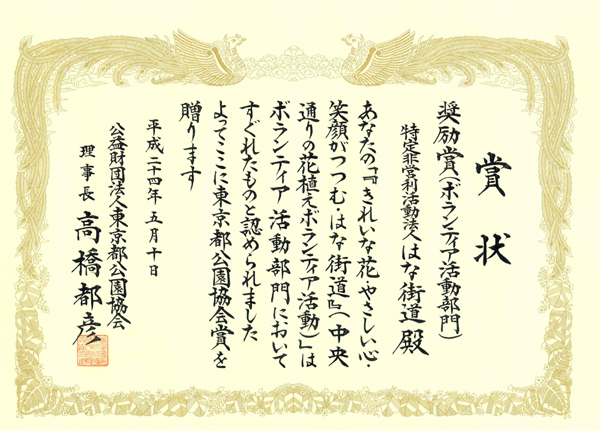 賞状
奨励賞(ボランティア活動部門)
特定非営利活動法人はな街道殿
あなたの「『きれいな花・やさしい心・
笑顔がつつむ・はな街道』(中央
通りの花植えボランティア活動)」は
ボランティア活動部門において
すぐれたものと認められました
よってここに東京都公園協会賞を
贈ります
平成二十四年五月十日
公益財団法人東京都公園協会
理事長 高橋都彦